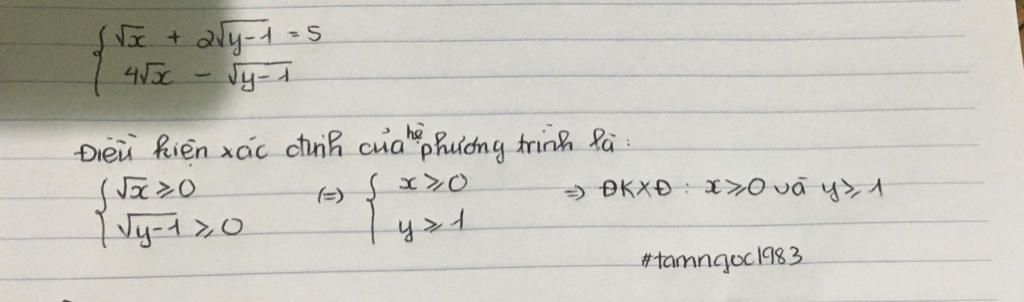 { √x + 2√y-1 = 5
4√x - √y-1
Điều kiện xác định của hệ phương trình là:
{ √x ≥ 0 (=) { x ≥ 0 => ĐKXĐ : x ≥ 0 và y ≥ 1
√y-1 ≥ 0 y ≥ 1
#tamngoc1983